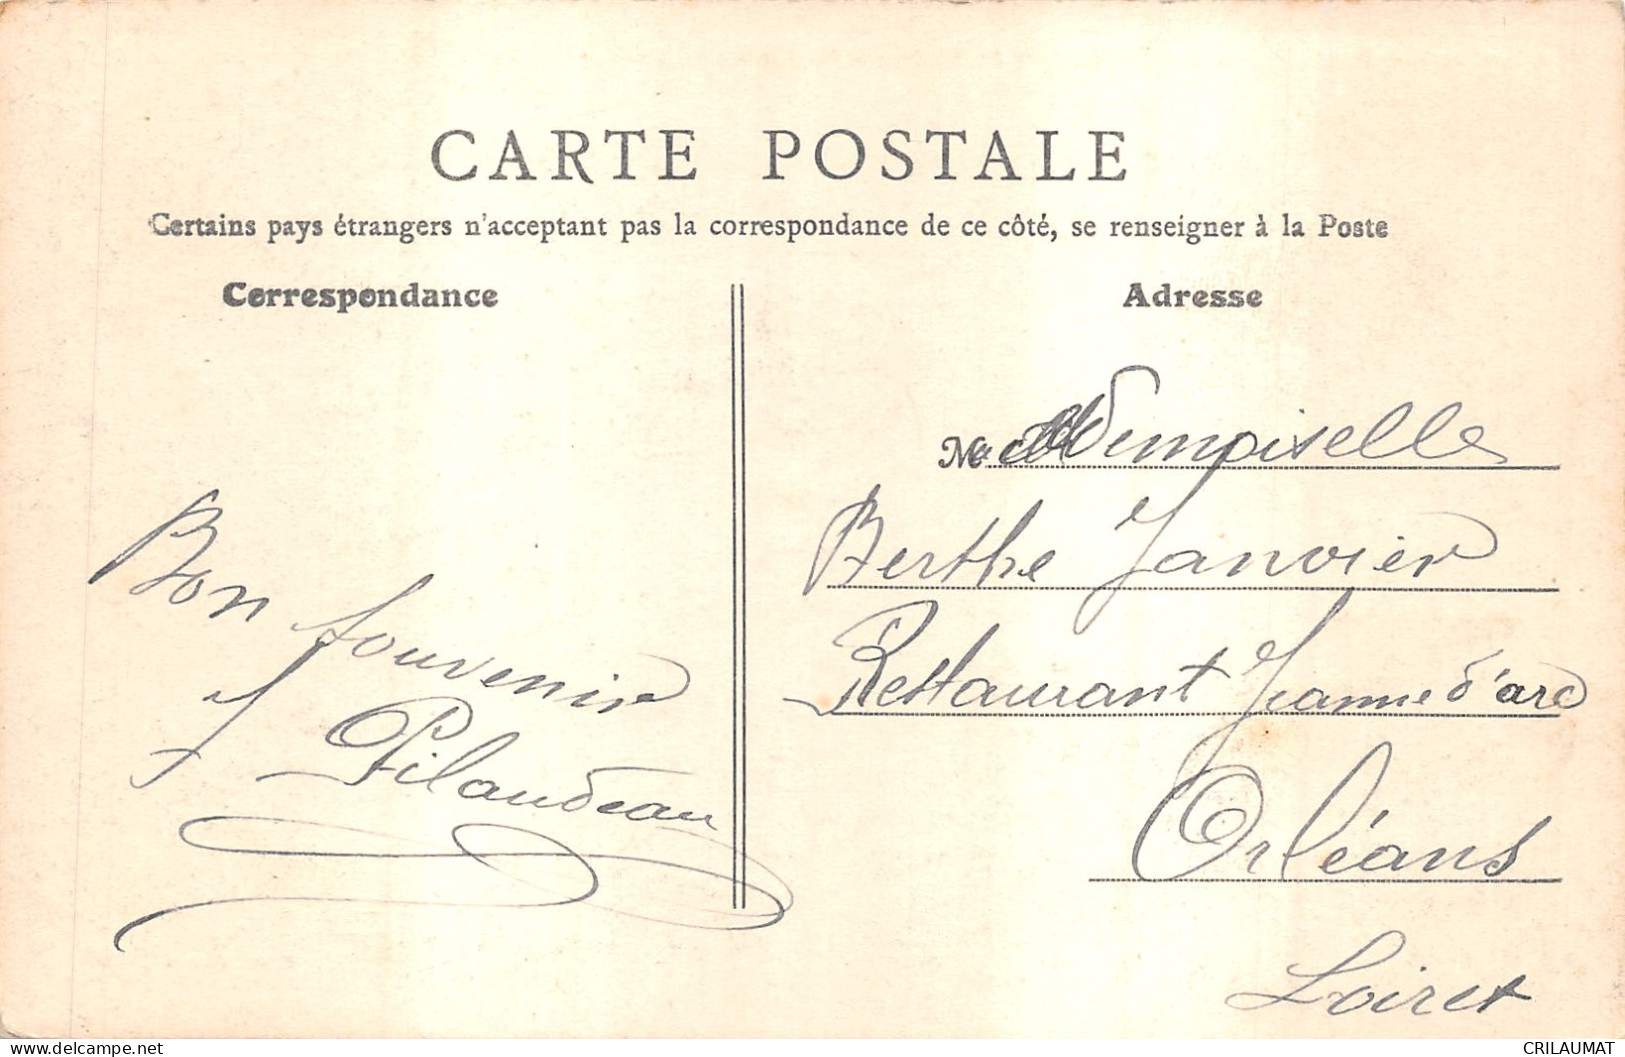 CARTE POSTALE
Certains pays étrangers n'acceptant pas la correspondance de ce côté, se renseigner à la Poste
Correspondance
Adresse
Bon souvenir
Pilaudeau
Mademoiselle
Berthe Janvier
Restaurant Jeanne d'arc
Orléans
Loiret
CRILAUMAT